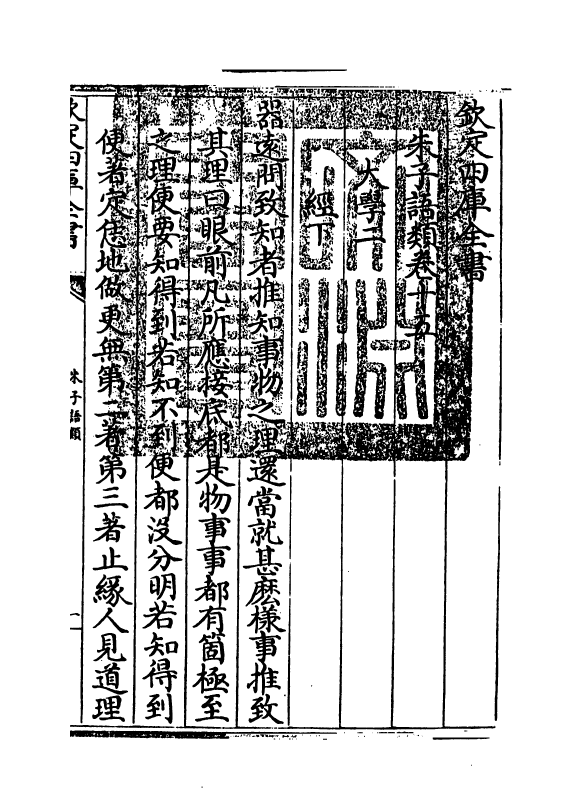 欽定四庫全書
朱子語類卷十五
大學二
經下
器遠問致知者推知事物之理還當就甚麽様事推致
其理曰眼前凡所應接底都是物事事都有箇極至
之理便要知得到若知不到便都沒分明若知得到
便著定恁地做更無第二著第三著止緣人見道理
欽定四庫全書
朱子語類
一